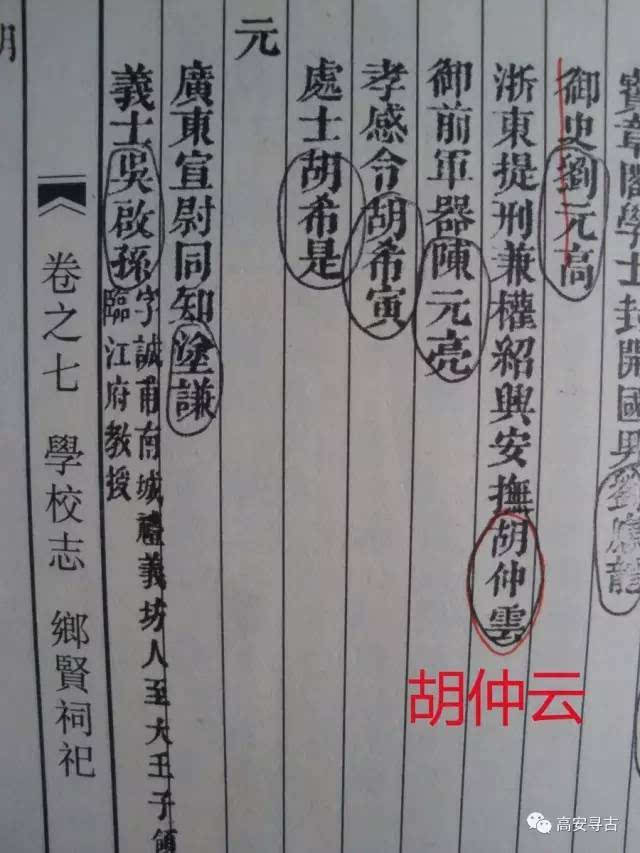 寶章閣學士封開國男劉應龍
御史劉元高
浙東提刑兼權紹興安撫胡仲雲
御前軍器陳元亮
孝感令胡希寅
處士胡希是
元
廣東宣慰同知塗謙
義士吳啟孫
字誠甫南城禮義坊人至大壬子領
臨江府教授
卷之七 學校志 鄉賢祠祀
胡仲云
高安寻古